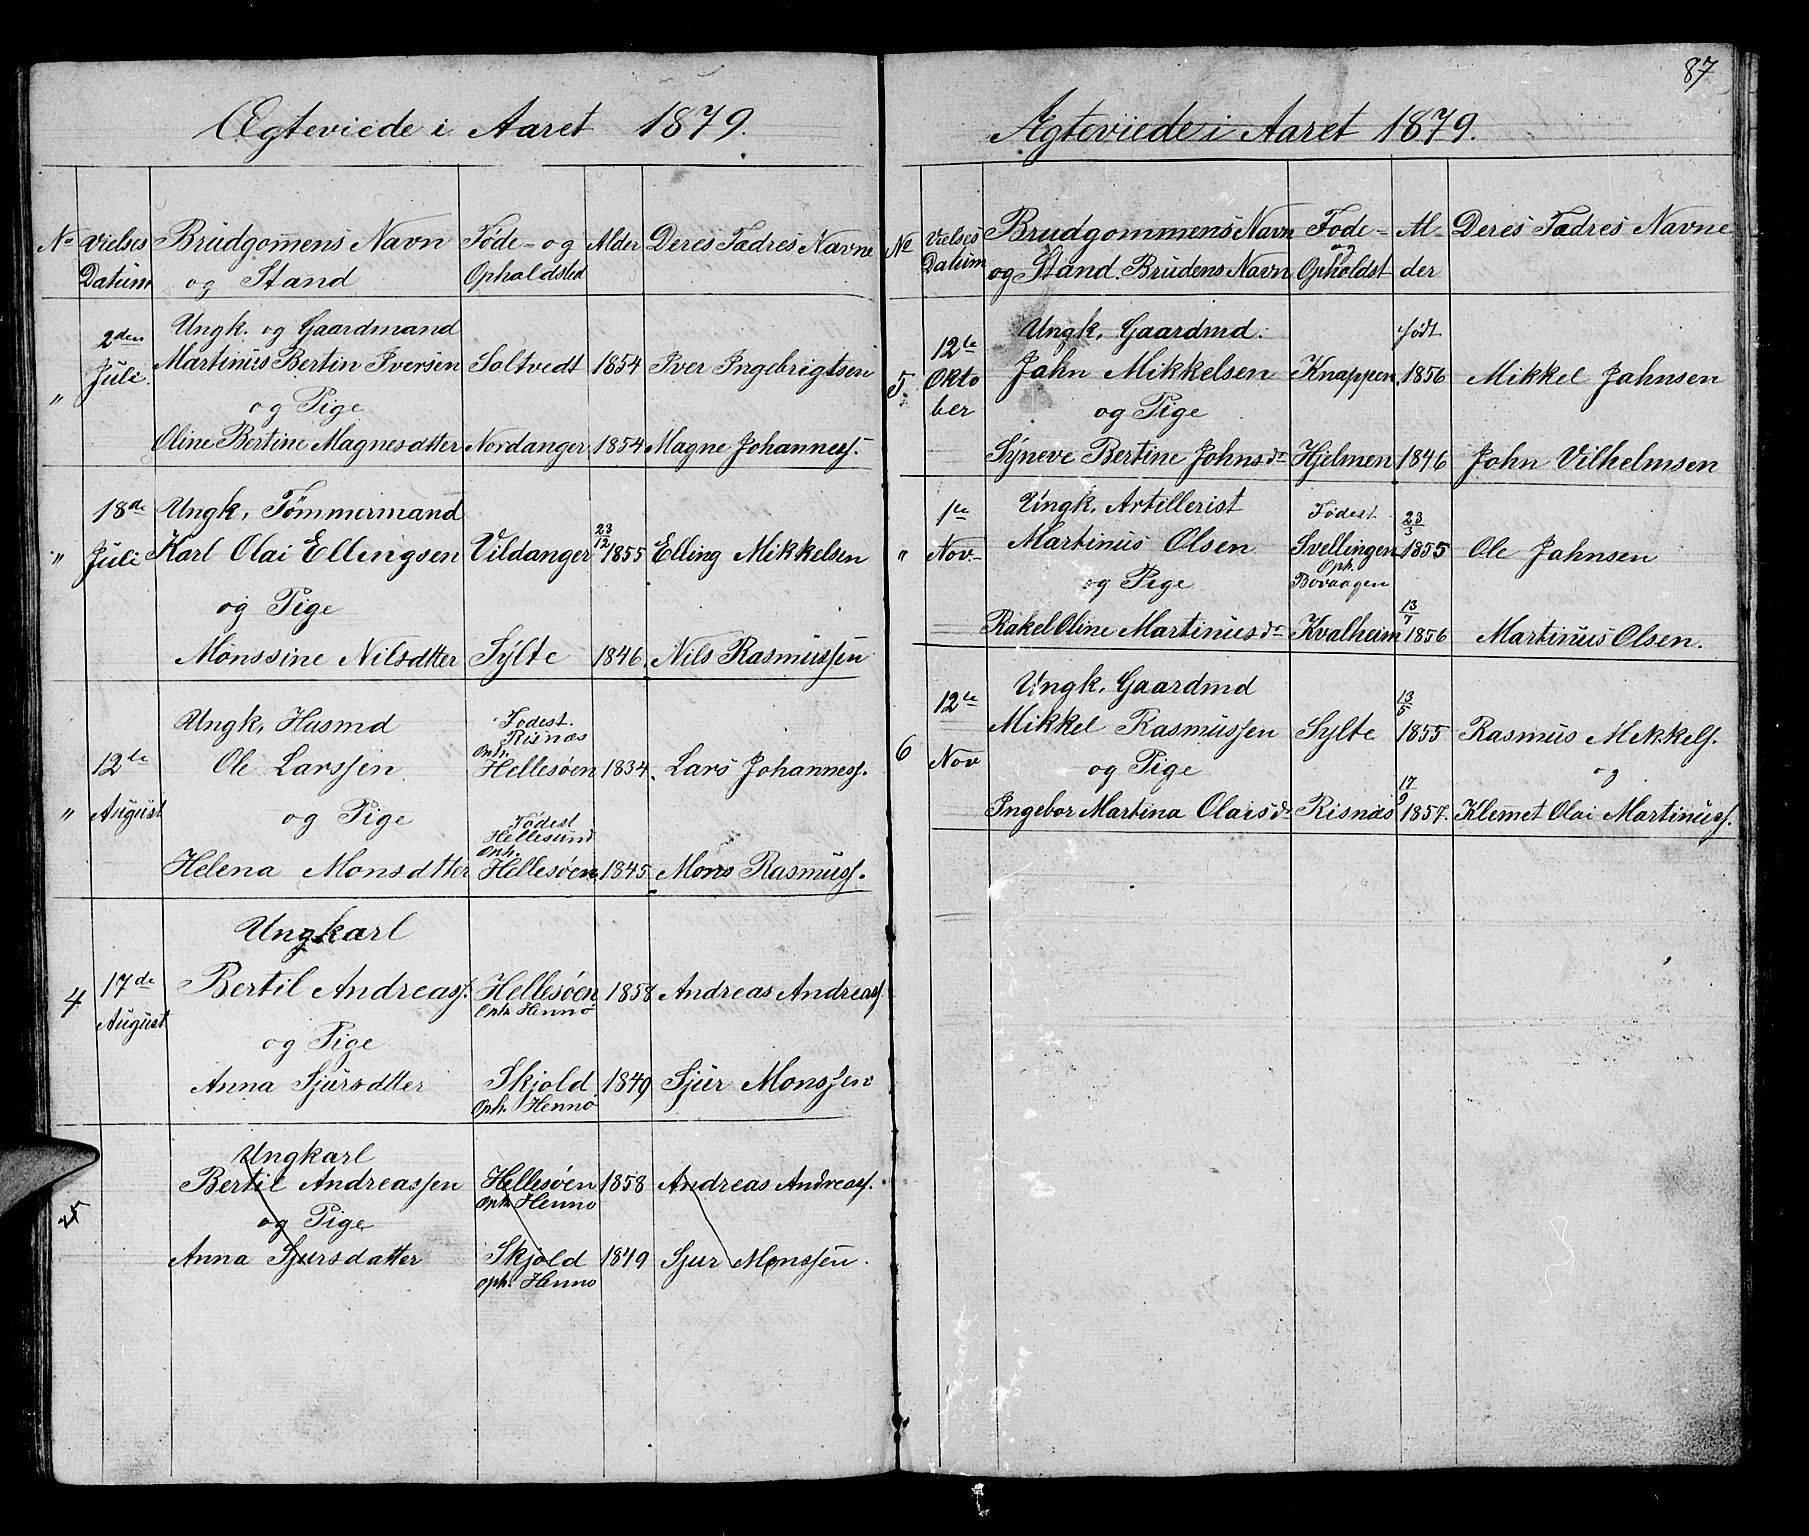 Ægteviede i Aaret 1879.
No Vielses Datum Brudgomens Navn og Stand Føde- og Opholdsted Alder Deres Fadres Navne
2den Ungk. og Gaardmand
" Juli. Martinus Bertin Iversen Soltvedt 1854 Iver Ingebrigtsen
og Pige
Oline Bertine Magnesdtter Nordanger 1854 Magne Johanness.
18de Ungk, Tømmermand 23/12
" Juli Karl Olai Ellingsen Vildanger 1855 Elling Mikkelsen
og Pige
Monssine Nilsdtter Sylte 1846. Nils Rasmussen
Ungk, Husmd Fodest. Risnæs
12te Ole Larssen Oph. Hellesøen 1834. Lars Johanness.
" August og Pige Fødest Hellesund
Helena Monsdtter Oph. Hellesøen 1845. Mons Rasmuss.
Ungkarl
4 17de Bertil Andreass. Hellesøen 1858 Andreas Andreass
August Oph Hennø
og Pige
Anna Sjursdtter Skjold 1849 Sjur Monssen
Oph. Hennø
Ungkarl
Bertil Andreassen Hellesøen 1858 Andreas Andreass.
5 og Pige Oph Henno
Anna Sjursdatter Skjold 1849 Sjur Monssen.
oph. Henno
87
Ægteviede i Aaret 1879.
No Vielses Datum Brudgommens Navn og Stand. Brudens Navn Fode- og Opholdst Al- der Deres Fædres Navne
12te Ungk, Gaardmd. født
5. Okto Jahn Mikkelsen Knappen 1856 Mikkel Jahnsen
ber og Pige
Syneve Bertine Johnsdr Hjelmen 1846 John Vilhelmsen
1te Ungk, Artillerist Fødest 23/3
" Nov- Martinus Olsen Svellingen 1855 Ole Jahnsen
og Pige Oph. Bovaagen 13/7
Rakel Oline Martinusdr Kvalheim 1856 Martinus Olsen.
12te Ungk, Gaardmd 13/5
Mikkel Rasmussen Sylte 1855 Rasmus Mekkels.
6 Nov og Pige 17/9 og
Ingebor Martina Olaisdr Risnæs 1857. Klemet Olai Martinuss.